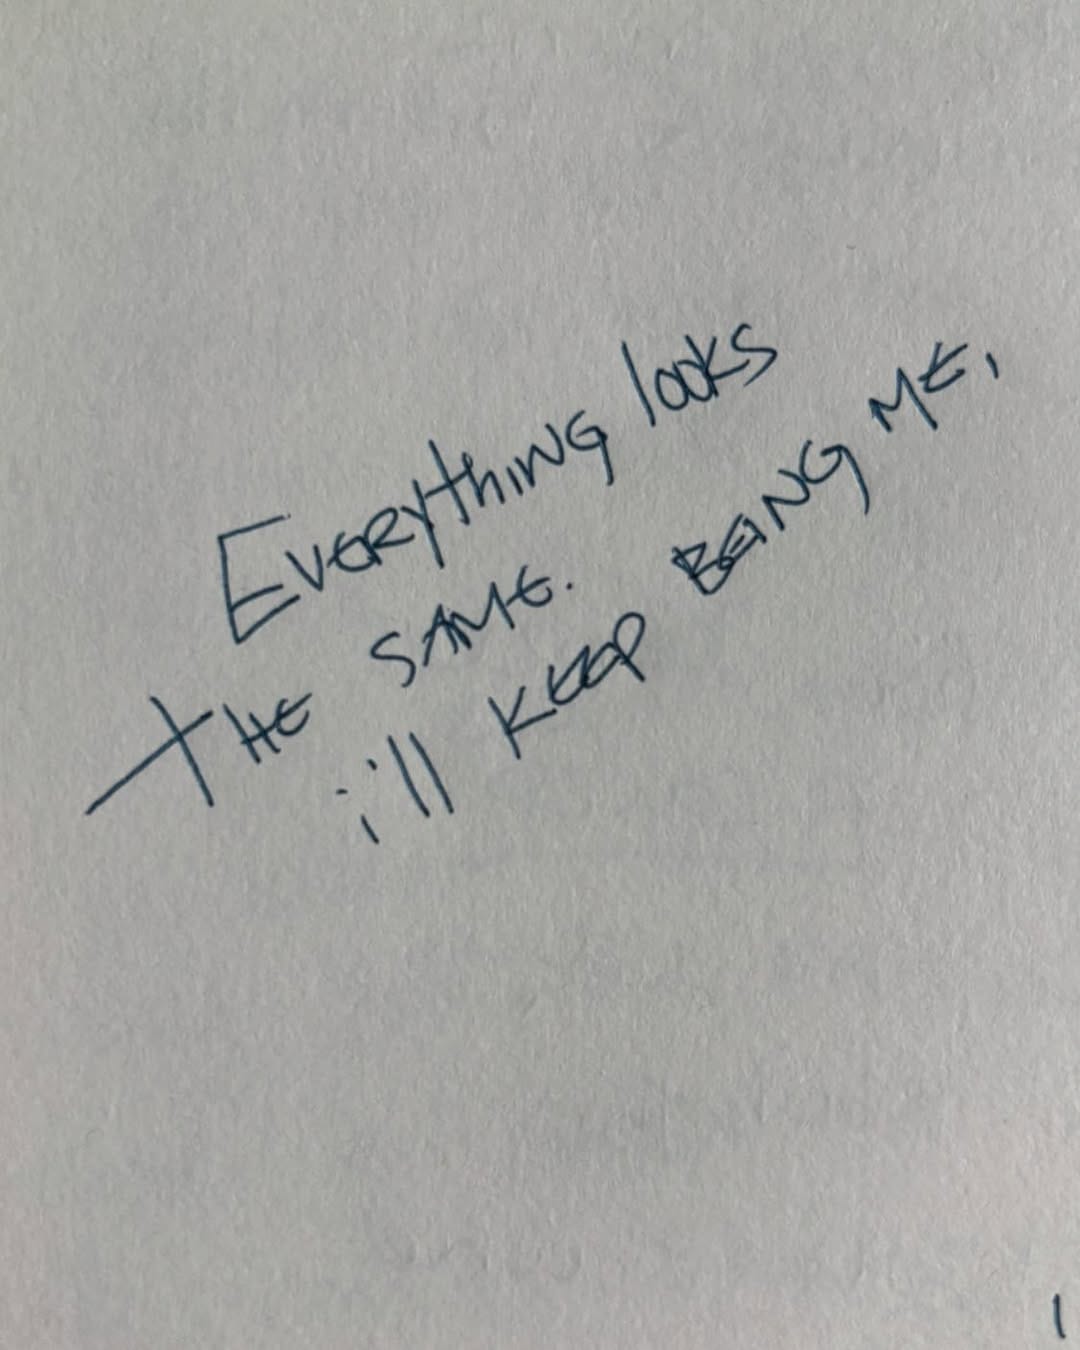 EVERYthiNG looks
tHE SAME.
i'll KEEP BEING ME,
1